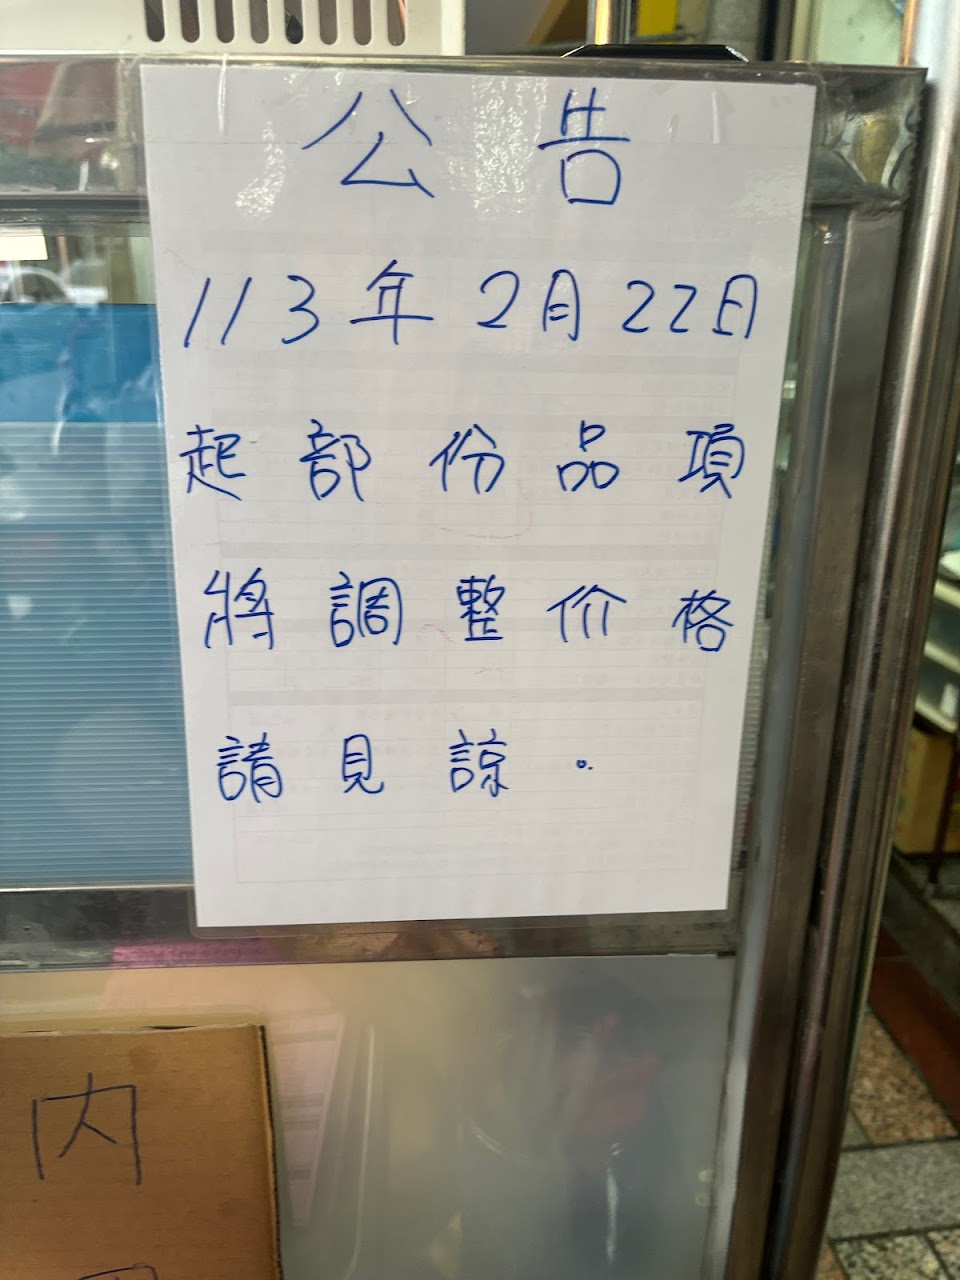 公告
113年2月22日
起部份品項
將調整价格
請見諒。
内